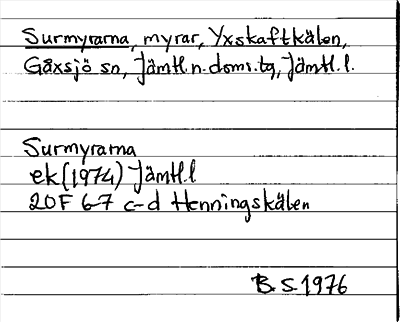 Surmyrarna, myrar, Yxskaftkälen,
Gåxsjö sn, Jämtl.n.doms.tg, Jämtl.l.
Surmyrarna
ek (1974) Jämtl.l
20F 6-7 c-d Henningskälen
B.S.1976